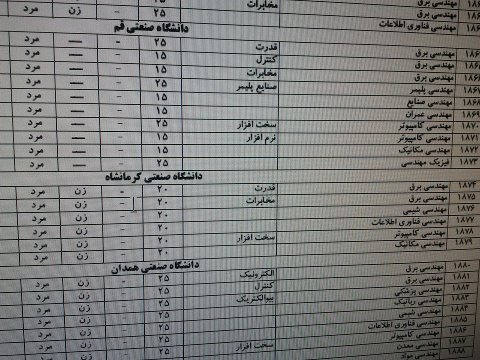 مهندسی برق مخابرات ۲۵ - زن مرد
مهندسی فناوری اطلاعات ۲۵ - زن مرد
دانشگاه صنعتی قم
مهندسی برق قدرت ۲۵ - — مرد
مهندسی برق کنترل ۱۵ - — مرد
مهندسی برق مخابرات ۱۵ - — مرد
مهندسی پلیمر صنایع پلیمر ۲۵ - — مرد
۱۸۶۸ مهندسی صنایع ۱۵ - — مرد
۱۸۶۹ مهندسی عمران ۱۵ - — مرد
۱۸۷۰ مهندسی کامپیوتر سخت افزار ۲۵ - — مرد
۱۸۷۱ مهندسی کامپیوتر نرم افزار ۱۵ - — مرد
۱۸۷۲ مهندسی مکانیک ۱۵ - — مرد
۱۸۷۳ فیزیک مهندسی ۲۵ - — مرد
دانشگاه صنعتی کرمانشاه
۱۸۷۴ مهندسی برق قدرت ۲۰ - زن مرد
۱۸۷۵ مهندسی برق مخابرات ۲۰ - زن مرد
۱۸۷۶ مهندسی شیمی ۲۰ - زن مرد
۱۸۷۷ مهندسی فناوری اطلاعات ۲۰ - زن مرد
۱۸۷۸ مهندسی کامپیوتر سخت افزار ۲۰ - زن مرد
۱۸۷۹ مهندسی مکانیک ۲۰ - زن مرد
دانشگاه صنعتی همدان
۱۸۸۰ مهندسی برق الکترونیک ۲۵ - زن مرد
۱۸۸۱ مهندسی برق کنترل ۲۵ - زن مرد
۱۸۸۲ مهندسی پزشکی بیوالکتریک ۲۵ - زن مرد
۱۸۸۳ مهندسی رباتیک ۲۵ - زن مرد
۱۸۸۴ مهندسی شیمی ۲۵ - زن مرد
۱۸۸۵ مهندسی فناوری اطلاعات ۲۵ - زن مرد
۱۸۸۶ مهندسی کامپیوتر سخت افزار ۲۵ - زن مرد
۱۸۸۷ مهندسی معدن
۱۸۸۸